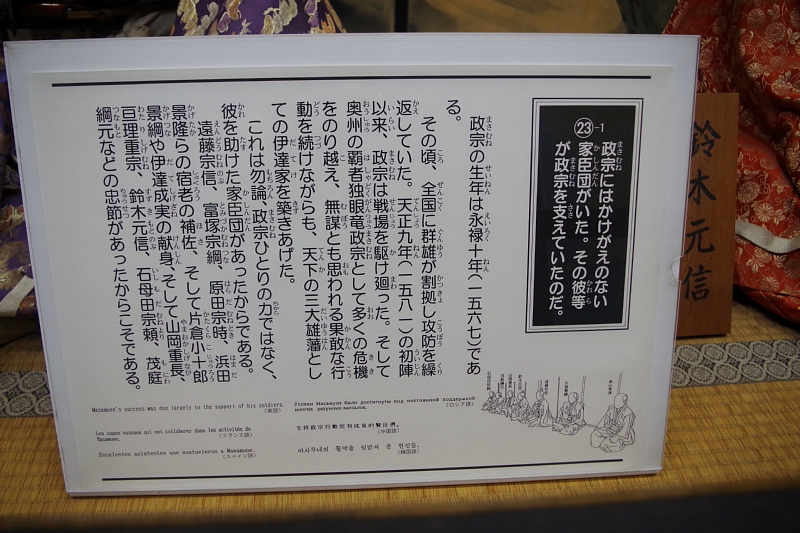 ㉓-1
政宗にはかけがえのない
家臣団がいた。その彼等
が政宗を支えていたのだ。
政宗の生年は永禄十年(一五六七)であ
る。
その頃、全国に群雄が割拠し攻防を繰
返していた。天正九年(一五八一)の初陣
以来、政宗は戦場を駆け廻った。そして
奥州の覇者独眼竜政宗として多くの危機
をのり越え、無謀とも思われる果敢な行
動を続けながらも、天下の三大雄藩とし
ての伊達家を築きあげた。
これは勿論、政宗ひとりの力ではなく、
彼を助けた家臣団があったからである。
遠藤宗信、富塚宗綱、原田宗時、浜田
景隆らの宿老の補佐、そして片倉小十郎
景綱や伊達成実の献身、そして山岡重長、
亘理重宗、鈴木元信、石母田宗頼、茂庭
綱元などの忠節があったからこそである。
Masamune's success was due largely to the support of his soldiers.
(英語)
Les sages vassaux qui ont collaboré dans les activités de
Masamune.
(フランス語)
Excelentes asistentes que sostuvieron a Masamune.
(スペイン語)
Успехи Масамунэ были достигнуты под постоянной поддержкой
многих разумных вассалов.
(ロシア語)
支持政宗行動而有成就的賢臣們。
(中国語)
마사무네의 활약을 뒷받쳐 준 현신들。
(韓国語)
鈴木元信